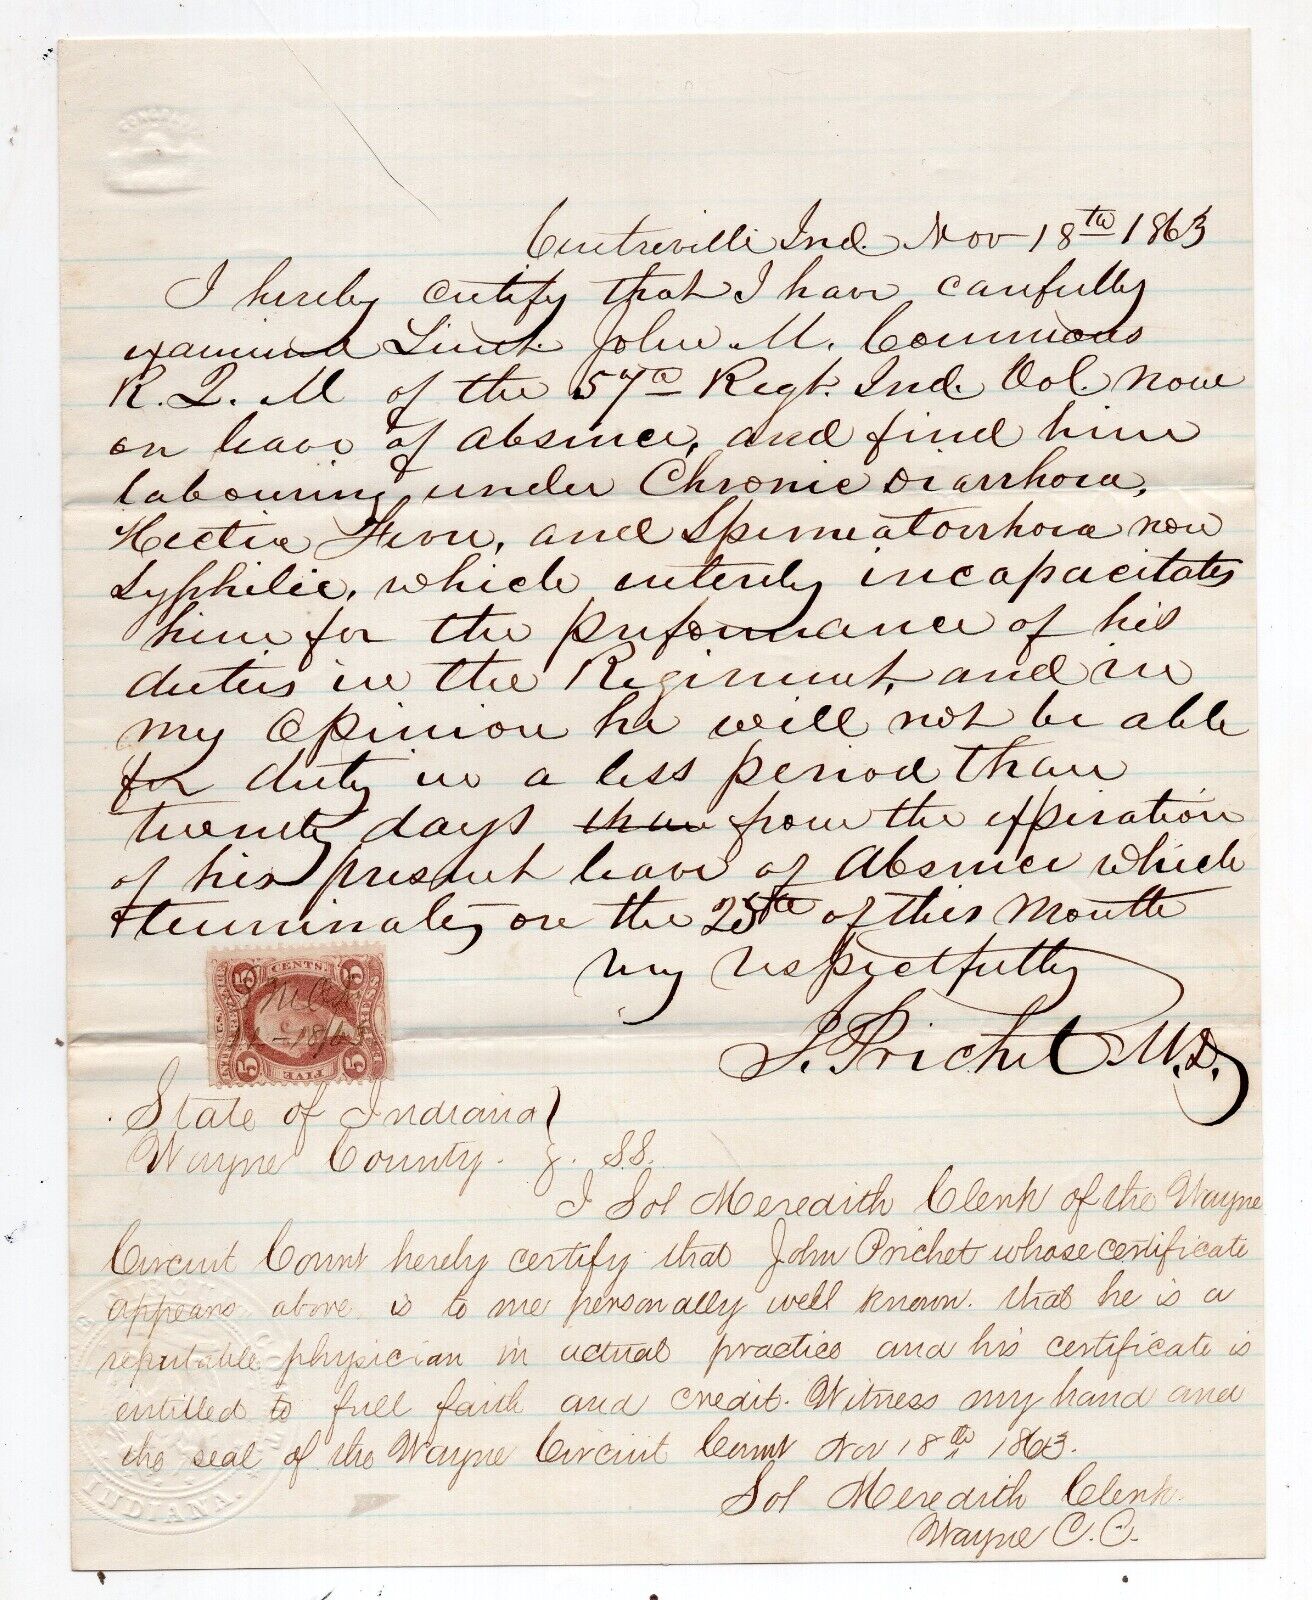 CONGRESS
Centreville Ind. Nov 18th 1863
I hereby certify that I have carefully
examined Lieut. John M. Commons
R. Q. M of the 57th Regt. Ind. Vol. now
on leave of absence, and find him
labouring under Chronic Diarrhoea,
Hectic Fever, and Spermatorrhoea non
Syphilic, which entirely incapacitates
him for the preformance of his
duties in the Regiment, and in
my opinion he will not be able
for duty in a less period than
twenty days than from the expiration
of his present leave of absence which
terminates on the 25th of this month
Very respectfully
J. Prichet M.D.
5 CENTS. 5
U.S. INTER. REV.
18/63
5 FIVE 5
State of Indiana }
Wayne County. } SS.
I Sol Meredith Clerk of the Wayne
Circuit Court hereby certify that John Prichet whose certificate
appears above is to me personally well known. that he is a
reputable physician in actual practice and his certificate is
entitled to full faith and credit. Witness my hand and
the seal of the Wayne Circuit Court Nov 18th 1863.
Sol Meredith Clerk.
Wayne C. C.
INDIANA.